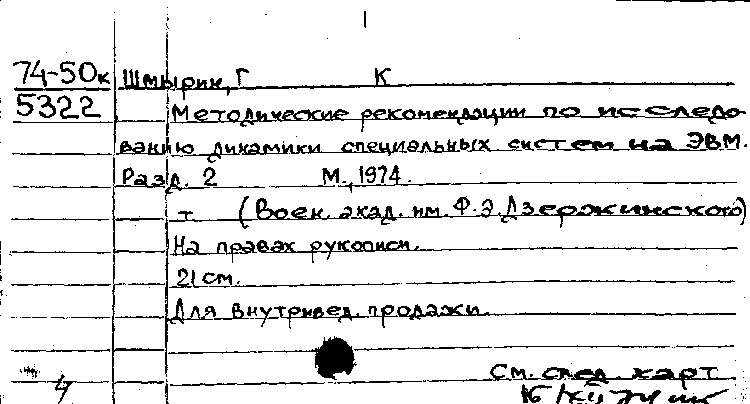 74-50к Шмырин, Г К
5322 Методические рекомендации по исследо
ванию динамики специальных систем на ЭВМ.
Разд. 2 М., 1974.
т. (Воен. акад. им. Ф.Э.Дзержинского)
На правах рукописи.
21 см.
Для внутривед. продажи.
См. след. карт
4